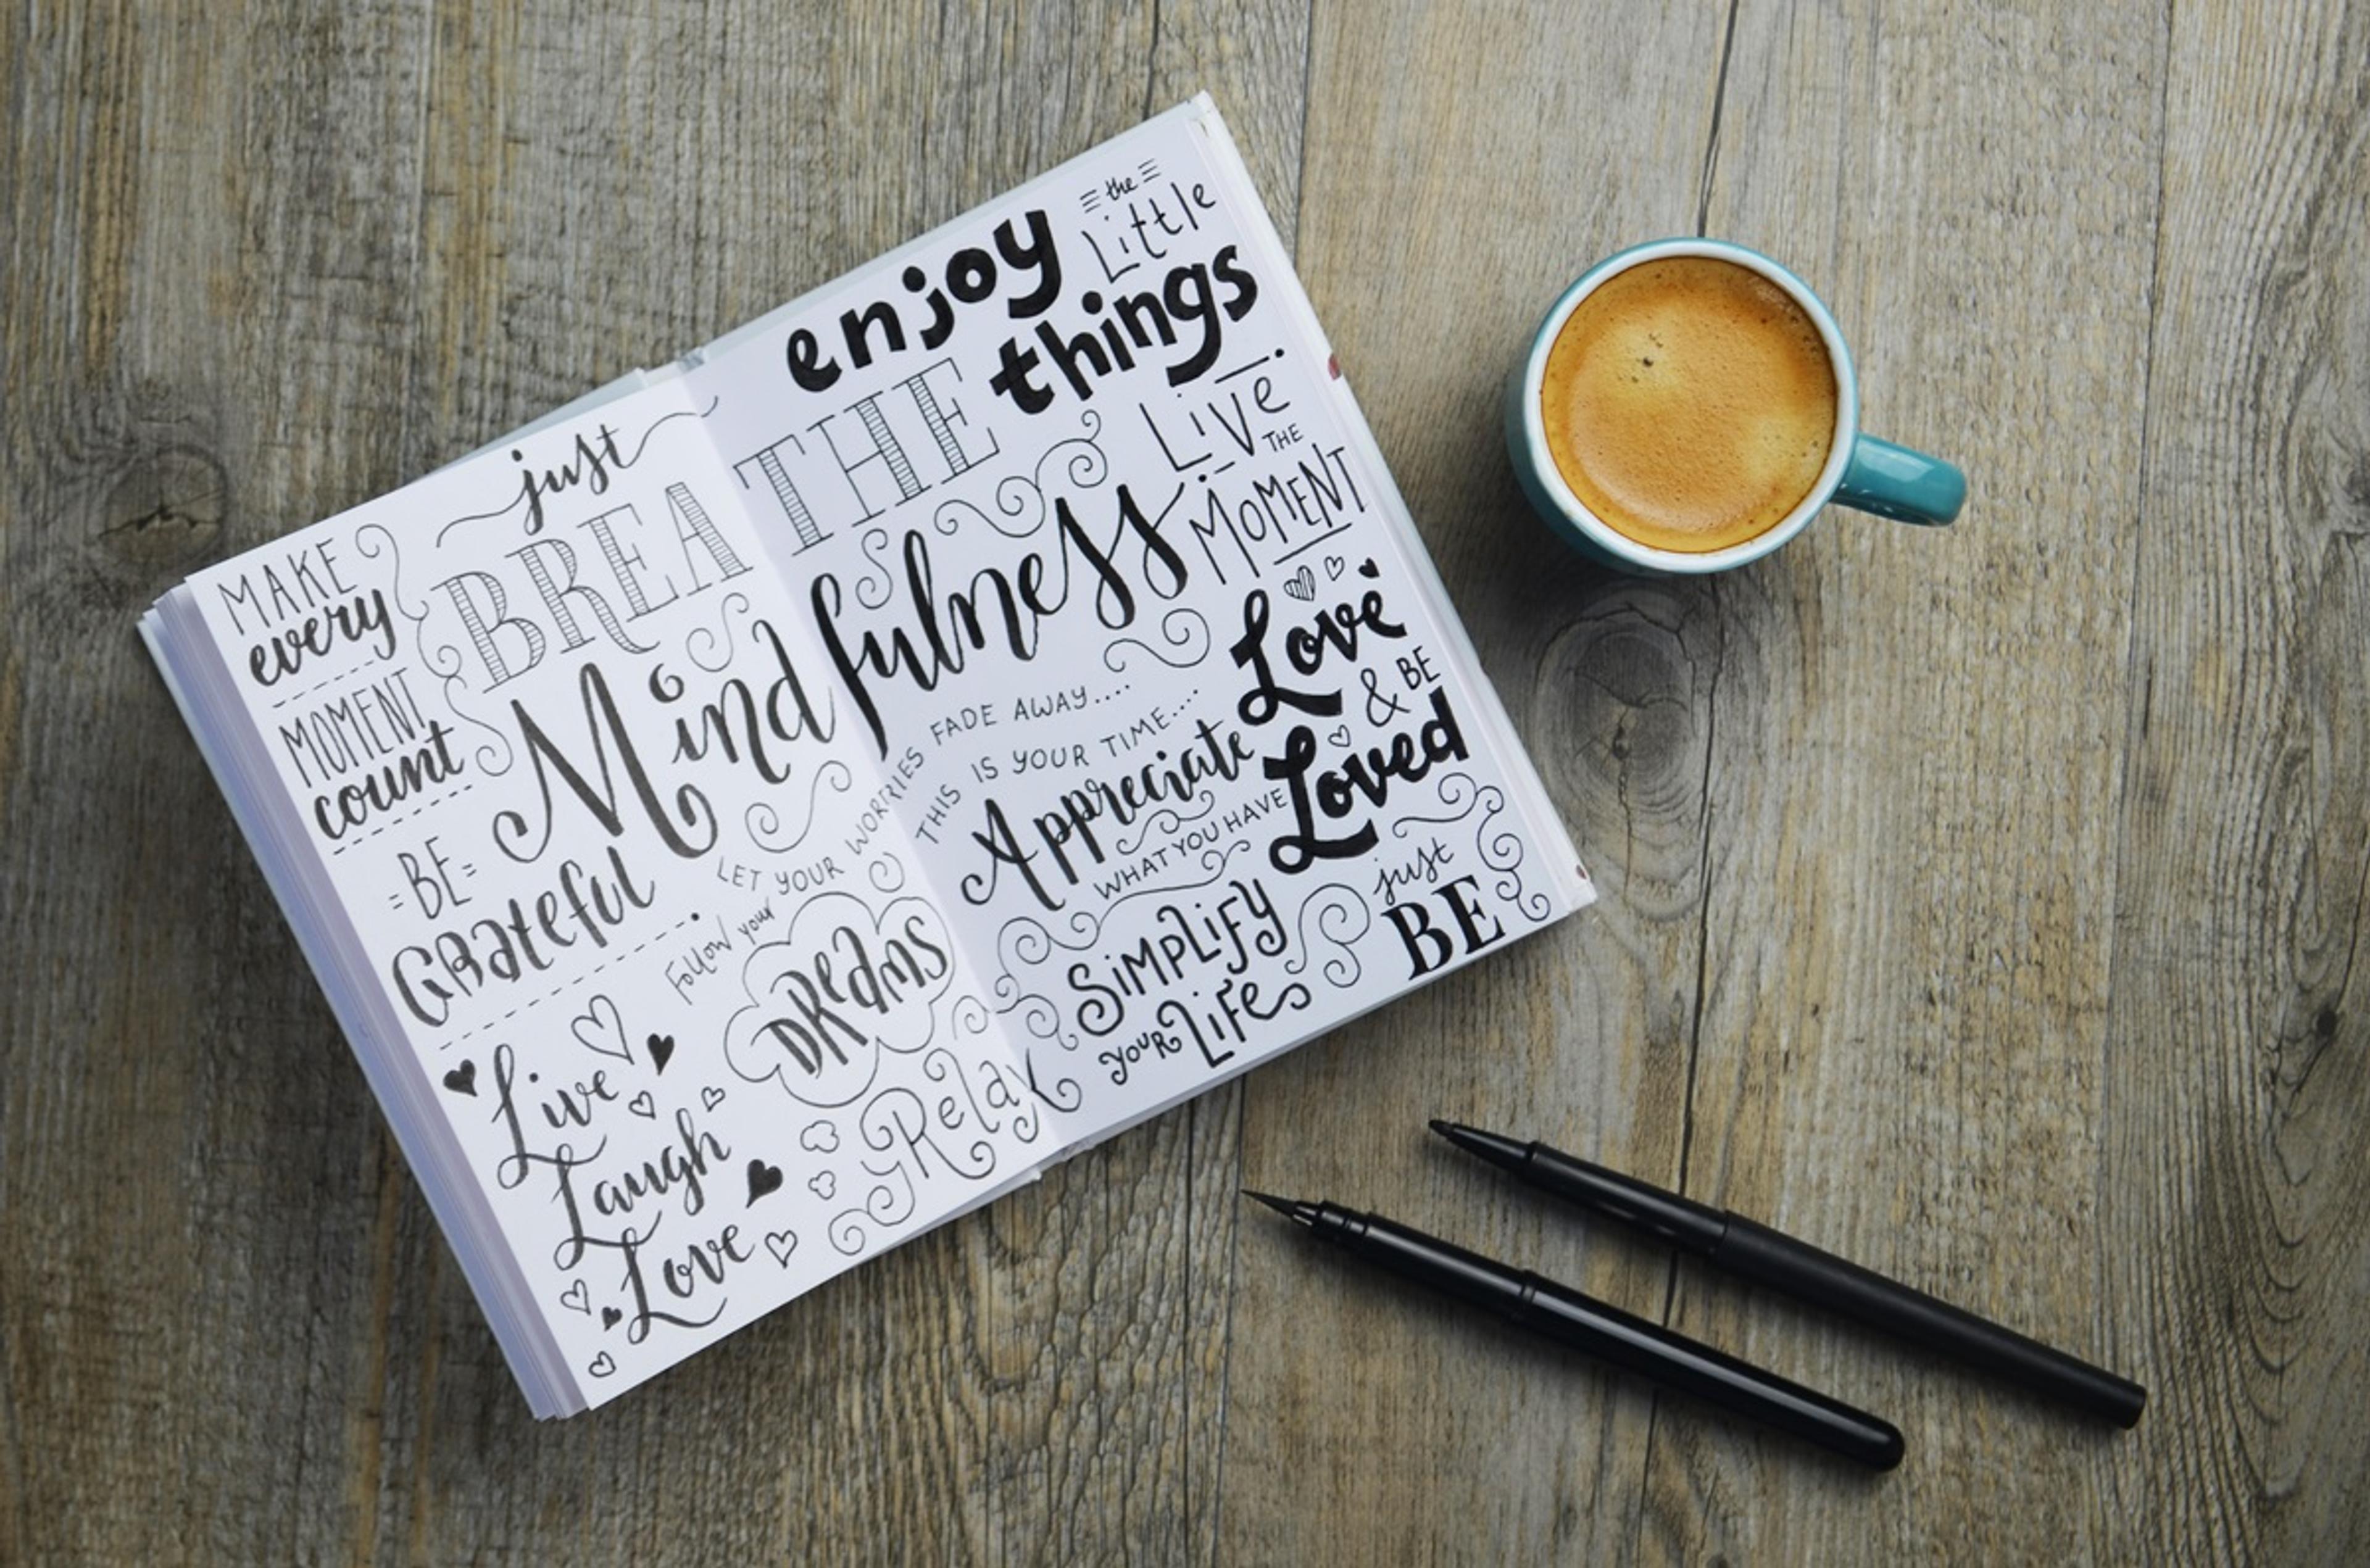 just
BREATHE
Mindfulness
MAKE
every
MOMENT
count
BE
GRateful
Live
Laugh
Love
LET YOUR WORRIES FADE AWAY....
THIS IS YOUR TIME....
Follow your
DReams
Relax
enjoy
the
Little
things
Live
THE
MOMENT
Love
& BE
Loved
Appreciate
WHAT YOU HAVE
SiMPLiFY
YOUR LiFe
just
BE